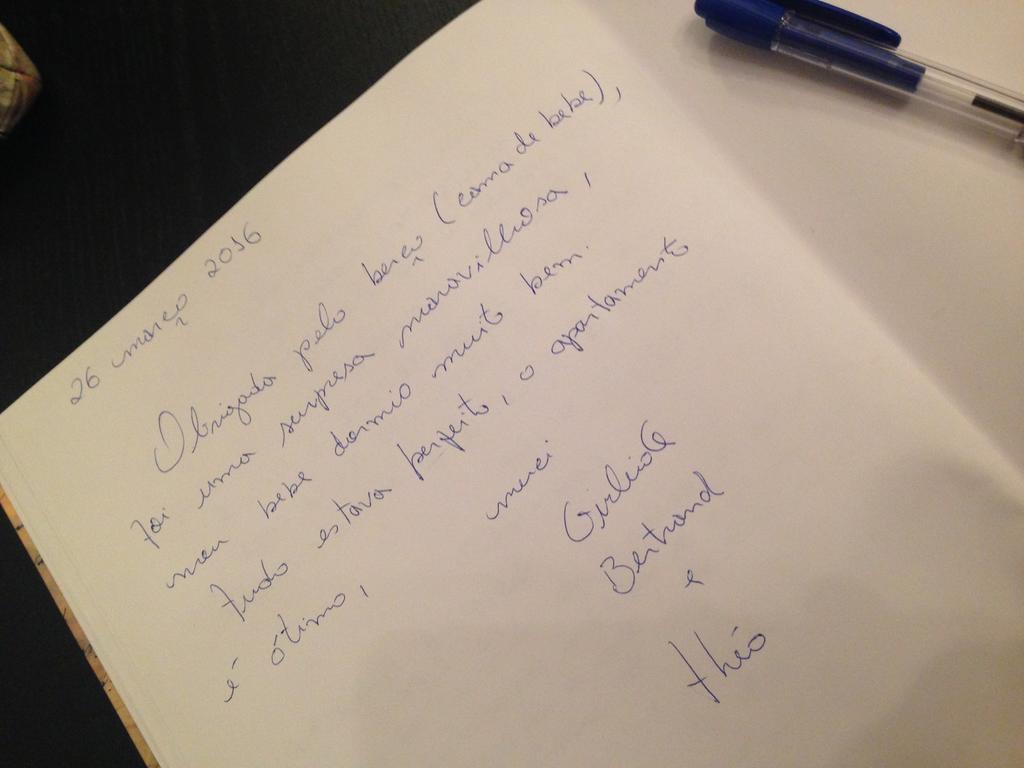 26 março 2016
Obrigada pelo berço (cama de bebe),
foi uma surpresa maravilhosa,
meu bebe dormio muito bem.
tudo estava perfeito, o apartamento
é ótimo,
merci
Bertrand
e
théo